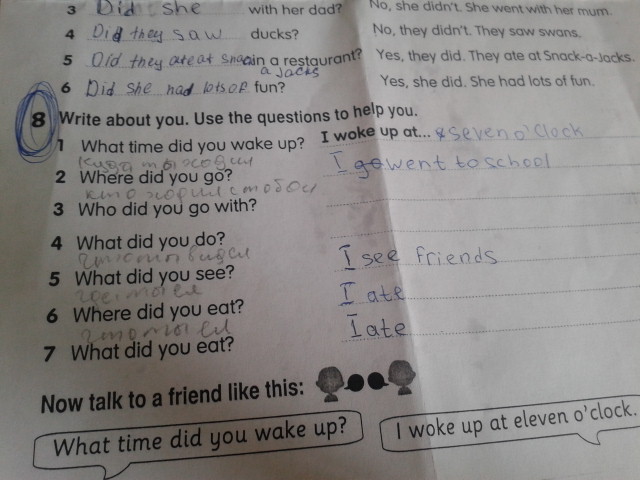 3 Did she with her dad? No, she didn't. She went with her mum.
4 Did they saw ducks? No, they didn't. They saw swans.
5 Did they ate at in a restaurant? Yes, they did. They ate at Snack-a-Jacks.
a Jacks
6 Did she had lots of fun? Yes, she did. She had lots of fun.
8 Write about you. Use the questions to help you.
1 What time did you wake up? I woke up at... seven o'clock
куда ты ходил
2 Where did you go? I go went to school
кто ходил с тобой
3 Who did you go with?
4 What did you do?
что ты видел
5 What did you see? I see friends
где ты ел
6 Where did you eat? I ate
что ты ел
7 What did you eat? I ate
Now talk to a friend like this:
What time did you wake up? I woke up at eleven o'clock.